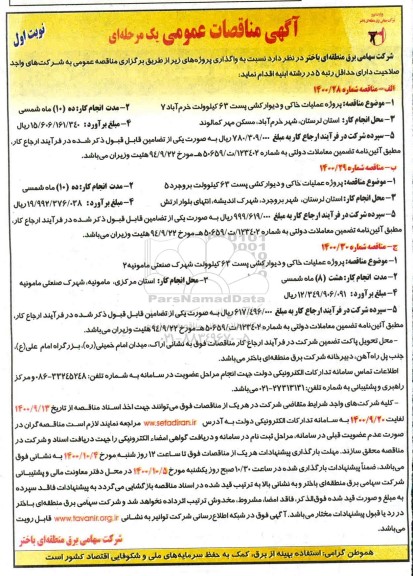 نوبت اول
آگهی مناقصات عمومی یک مرحله‌ای
شرکت سهامی برق منطقه‌ای باختر در نظر دارد نسبت به واگذاری پروژه‌های زیر از طریق برگزاری مناقصه عمومی به شرکت‌های واجد
صلاحیت دارای حداقل رتبه ۵ در رشته ابنیه اقدام نماید:
الف- مناقصه شماره ۱۴۰۰/۲۸
۱- موضوع مناقصه: پروژه عملیات خاکی و دیوارکشی پست ۶۳ کیلوولت خرم‌آباد ۷
۲- مدت انجام کار: ده (۱۰) ماه شمسی
۳- محل انجام کار: استان لرستان، شهر خرم‌آباد، مسکن مهر کمالوند
۴- مبلغ برآورد: ۱۵/۶۰۶/۱۶۱/۳۴۰ ریال
۵- سپرده شرکت در فرآیند ارجاع کار به مبلغ ۷۸۰/۳۰۹/۰۰۰ ریال به صورت یکی از تضامین قابل قبول ذکر شده در فرآیند ارجاع کار،
مطابق آئین‌نامه تضمین معاملات دولتی به شماره ۱۲۳۴۰۲/ت۵۰۶۵۹هـ مورخ ۹۴/۹/۲۲ هئیت وزیران می‌باشد.
ب- مناقصه شماره ۱۴۰۰/۲۹
۱- موضوع مناقصه: پروژه عملیات خاکی و دیوارکشی پست ۶۳ کیلوولت بروجرد ۵
۲- مدت انجام کار: ده (۱۰) ماه شمسی
۳- محل انجام کار: استان لرستان، شهر بروجرد، شهرک اندیشه، انتهای بلوار ارتش
۴- مبلغ برآورد: ۱۹/۹۹۲/۳۷۶/۰۲۸ ریال
۵- سپرده شرکت در فرآیند ارجاع کار به مبلغ ۹۹۹/۶۱۹/۰۰۰ ریال به صورت یکی از تضامین قابل قبول ذکر شده در فرآیند ارجاع کار،
مطابق آئین‌نامه تضمین معاملات دولتی به شماره ۱۲۳۴۰۲/ت۵۰۶۵۹هـ مورخ ۹۴/۹/۲۲ هئیت وزیران می‌باشد.
ج- مناقصه شماره ۱۴۰۰/۳۰
۱- موضوع مناقصه: پروژه عملیات خاکی و دیوارکشی پست ۶۳ کیلوولت شهرک صنعتی مامونیه ۲
۲- مدت انجام کار: هشت (۸) ماه شمسی
۳- محل انجام کار: استان مرکزی، مامونیه، شهرک صنعتی مامونیه
۴- مبلغ برآورد: ۱۲/۳۴۹/۹۰۶/۰۹۱ ریال
۵- سپرده شرکت در فرآیند ارجاع کار به مبلغ ۶۱۷/۴۹۶/۰۰۰ ریال به صورت یکی از تضامین قابل قبول ذکر شده در فرآیند ارجاع کار،
مطابق آئین‌نامه تضمین معاملات دولتی به شماره ۱۲۳۴۰۲/ت۵۰۶۵۹هـ مورخ ۹۴/۹/۲۲ هئیت وزیران می‌باشد.
- محل تحویل پاکت تضمین شرکت در فرآیند ارجاع کار مناقصات فوق به نشانی اراک، میدان امام خمینی(ره)، بزرگراه امام علی(ع)،
جنب پل راه‌آهن، دبیرخانه شرکت برق منطقه‌ای باختر می‌باشد.
اطلاعات تماس سامانه تدارکات الکترونیکی دولت جهت انجام مراحل عضویت در سامانه به شماره تلفن: ۳۳۲۴۵۲۴۸-۰۸۶ و مرکز
راهبری و پشتیبانی به شماره تلفن: ۲۷۳۱۳۱۳۱-۰۲۱ می‌باشد.
- کلیه شرکت‌های واجد شرایط متقاضی شرکت در هر یک از مناقصات فوق می‌توانند جهت اخذ اسناد مناقصه از تاریخ ۱۴۰۰/۹/۱۳
لغایت ۱۴۰۰/۹/۲۰ به سامانه تدارکات الکترونیکی دولت به آدرس www.setadiran.ir مراجعه نمایند. لازم است مناقصه گران در
صورت عدم عضویت قبلی در سامانه، مراحل ثبت نام در سامانه و دریافت گواهی امضاء الکترونیکی را جهت دریافت اسناد و شرکت در
مناقصه محقق سازند. مهلت بارگذاری پیشنهادات هر یک از مناقصات فوق تا ساعت ۱۲ روز شنبه مورخ ۱۴۰۰/۱۰/۴ به نشانی فوق
می‌باشد. ضمناً پیشنهادات بارگذاری شده در ساعت ۱۰/۳۰ صبح روز یکشنبه مورخ ۱۴۰۰/۱۰/۵ در محل دفتر معاونت مالی و پشتیبانی
شرکت برق منطقه‌ای باختر و به نشانی بالا به ترتیب قید شده در اسناد مناقصه بازگشایی می‌گردد به پیشنهادات فاقد سپرده
به مبلغ و صورت قید شده فوق‌الذکر، فاقد امضا، مشروط، مخدوش ترتیب اثر داده نخواهد شد و شرکت سهامی برق منطقه‌ای باختر
در رد یا قبول پیشنهادات مختار می‌باشد. آگهی فوق در شبکه اطلاع رسانی شرکت توانیر به نشانی www.tavanir.org.ir قابل رویت
می‌باشد.
شرکت سهامی برق منطقه‌ای باختر
هموطن گرامی: استفاده بهینه از برق، کمک به حفظ سرمایه‌های ملی و شکوفایی اقتصاد کشور است
ParsNamadData